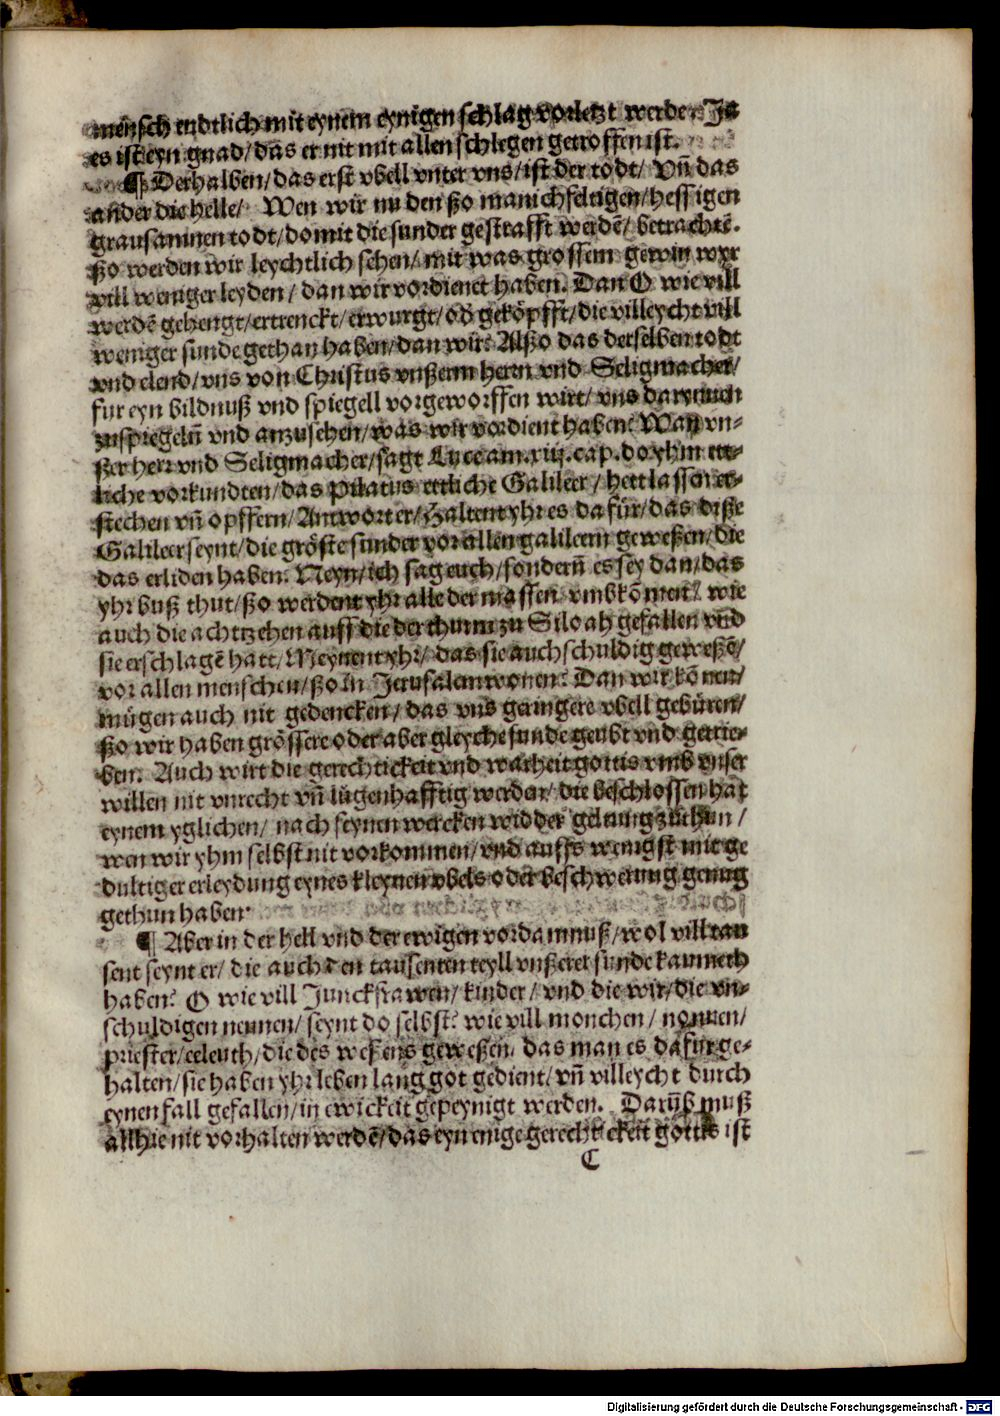 mensch endtlich mit eynem eynigen schlag vorletzt werde. Ja
es ist eyn gnad/ das er nit mit allen schlegen getroffen ist.
¶ Derhalben/ das erst vbell vnter vns/ ist der todt/ vn̄ das
ander die helle/ Wen wir nu den ßo manichfeltigen/ hessigen
grausamnen todt/ domit die sunder gestrafft werdē/ betrachtē.
ßo werden wir leychtlich sehen/ mit was grossem gewin wyr
vill weniger leyden/ dan wir vordienet haben. Dan O wie vill
werdē gehengt/ ertrenckt/ erwurgt/ ob geköpfft/ die villeycht vill
weniger sunde gethan haben/ dan wir? Alßo das derselben todt
vnd elend/ vns von Christus vnßerm herrn vnd Seligmacher/
fur eyn bildnuß vnd spiegell vorgeworffen wirt/ vns darynnen
zuspiegeln̄ vnd anzusehen/ was wir vordient haben? Wan vn-
ßer herr vnd Seligmacher/ sagt Luce am. xiij. cap. do yhm ett-
liche vorkundten/ das Pilatus ettliche Galileer/ hett lassen er-
stechen vn̄ opffern/ Antwort er/ Haltent yhr es dafür/ das diße
Galileer seynt/ die gröste sunder vor allen galileern geweßen/ die
das erliden haben? Neyn/ ich sag euch/ sondern̄ es sey dan/ das
yhr buß thut/ ßo werdent yhr alle der massen vmbkōmen? wie
auch die achtzehen auff die der thurm zu Siloah gefallen vn̄d
sie erschlagē hatt/ Meynent yhr/ das sie auch schuldig geweßē/
vor allen menschen/ ßo in Jerusalem wonen? Dan wir kōnen/
mügen auch nit gedencken/ das vns geringere vbell gebüren/
ßo wir haben grössere oder aber gleyche sunde geubt vnd getrie-
ben. Auch wirt die gerechtickeit vnd warheit gottis vmb vnser
willen nit vnrecht vn̄ lügenhafftig werden/ die beschlossen hat
eynem yglichen/ nach seynen wercken widdergeltung zuthun/
wen wir yhm selbst nit vorkommen/ vnd auffs wenigst mit ge
dultiger erleydung eynes kleynen vbels oder beschwerung genug
gethun haben.
¶ Aber in der hell vnd der ewigen vordamnuß/ wol vill tau
sent seynt er/ die auch den tausenten teyll vnßerer sunde kaum eth
haben? O wie vill Junckfrawen/ kinder/ vnd die wir/ die vn-
schuldigen nennen/ seynt do selbst? wie vill monchen/ nonnen/
priester/ eeleuth/ die des weßens geweßen/ das man es dafür ge-
halten/ sie haben yhr leben lang got gedient/ vn̄ villeycht durch
eynen fall gefallen/ in ewickeit gepeynigt werden. Darūb muß
allhie nit vorhalten werdē/ das eyn enige gerechtickeit gottis ist
C
Digitalisierung gefördert durch die Deutsche Forschungsgemeinschaft - DFG